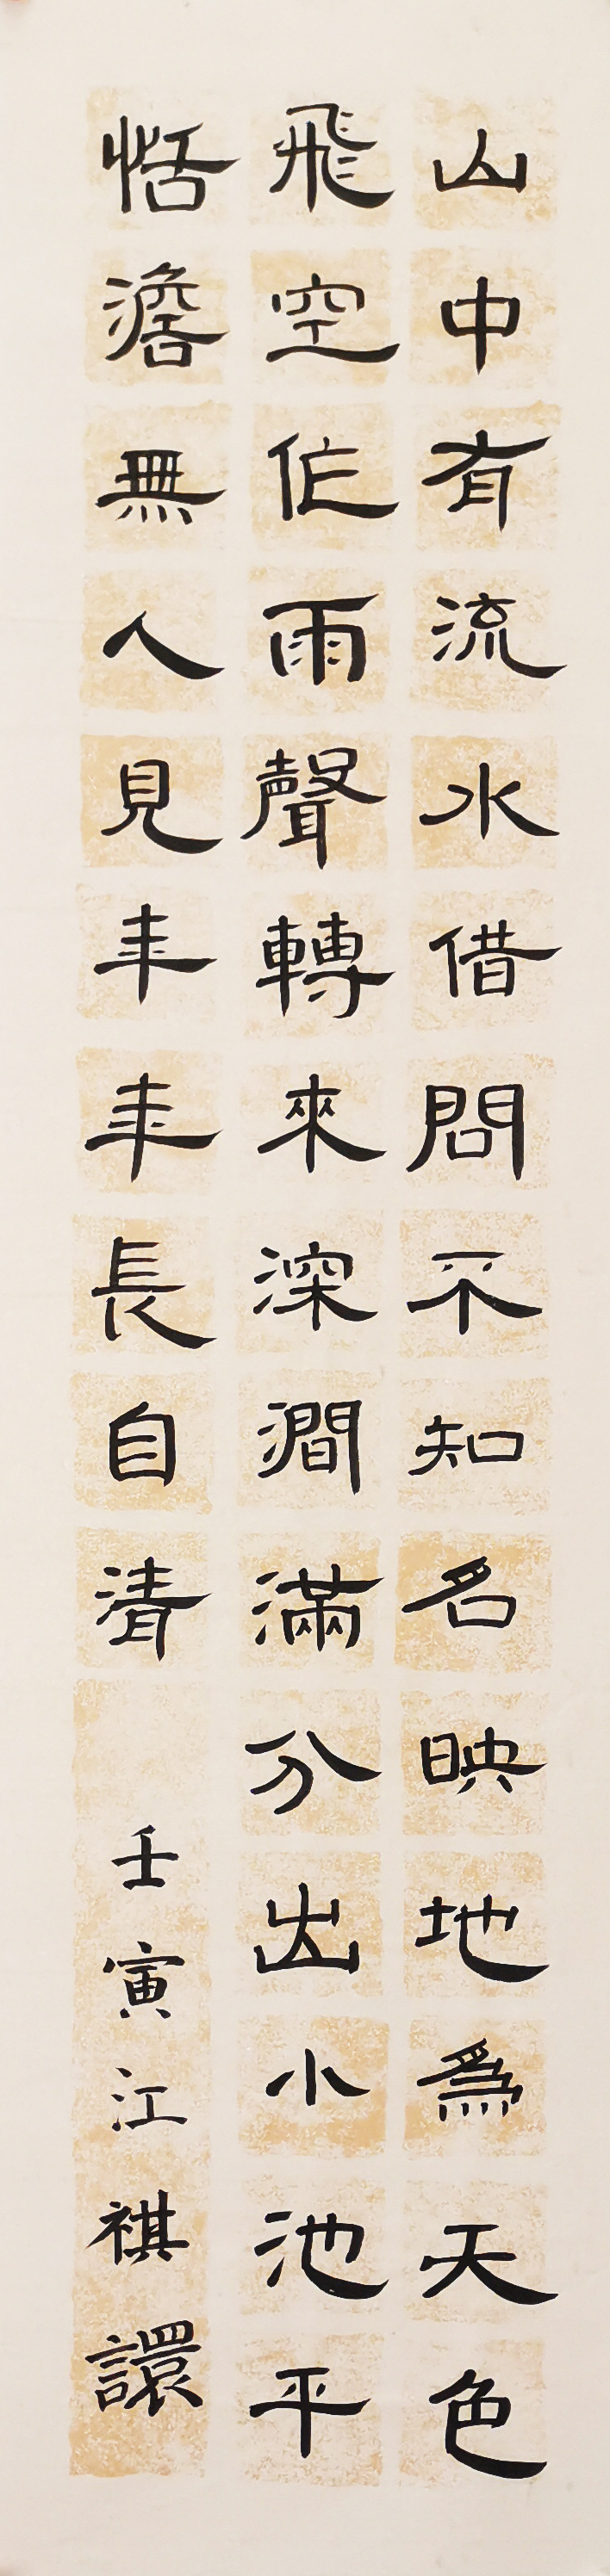 山中有流水借問不知名映地為天色
飛空作雨聲轉來深澗滿分出小池平
恬澹無人見年年長自清
壬寅江祺譞